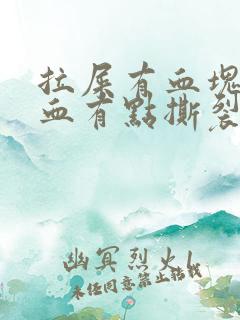 拉屎有血塊
血有點撕裂
幽冥烈火l
未经同意禁止转载